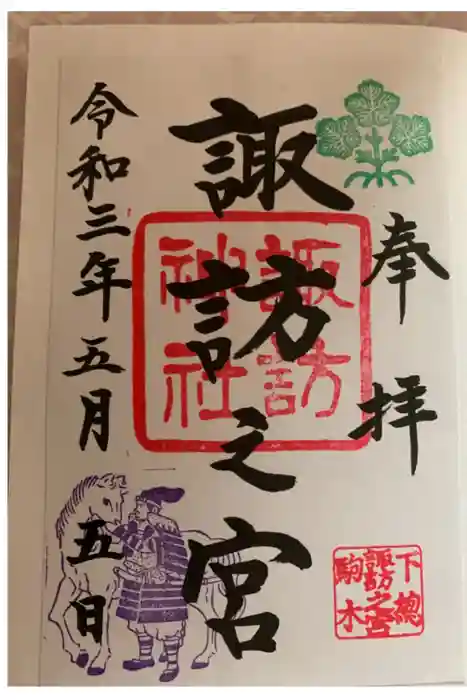 奉拝
諏訪之宮
諏訪神社
下總
諏訪之宮
駒木
令和三年五月五日